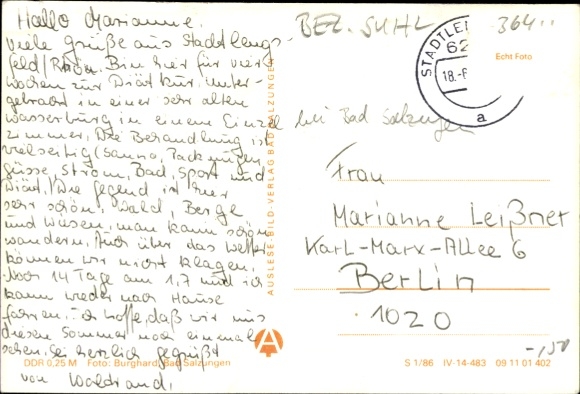 Hallo Marianne.
viele Grüße aus Stadtlengs-
feld/Rhön. Bin hier für vier
Wochen zur Diätkur. Unter-
gebracht in einer sehr alten
Wasserburg in einem Einzel
zimmer. Die Behandlung ist
vielseitig (Sauna, Packungen,
güsse, Strom, Bad, Sport und
Diät. Die Gegend ist hier
sehr schön. Wald, Berge
und Wiesen, man kann schön
wandern. Auch über das Wetter
können wir nicht klagen.
Noch 14 Tage am 1,7 und ich
kann wieder nach Hause
fahren. Ich hoffe, daß wir uns
diesen Sommer noch einmal
sehen. Sei herzlich gegrüßt
von Waltraud.
DDR 0,25 M Foto: Burghardt, Bad Salzungen
AUSLESE-BILD-VERLAG BAD SALZUNGEN
BEZ. SUHL
364..
STADTLE
62
18.-6
a
Echt Foto
bei Bad Salzungen
Frau
Marianne Leißner
Karl-Marx-Allee 6
Berlin
1020
-,50
A
S 1/86 IV-14-483 09 11 01 402